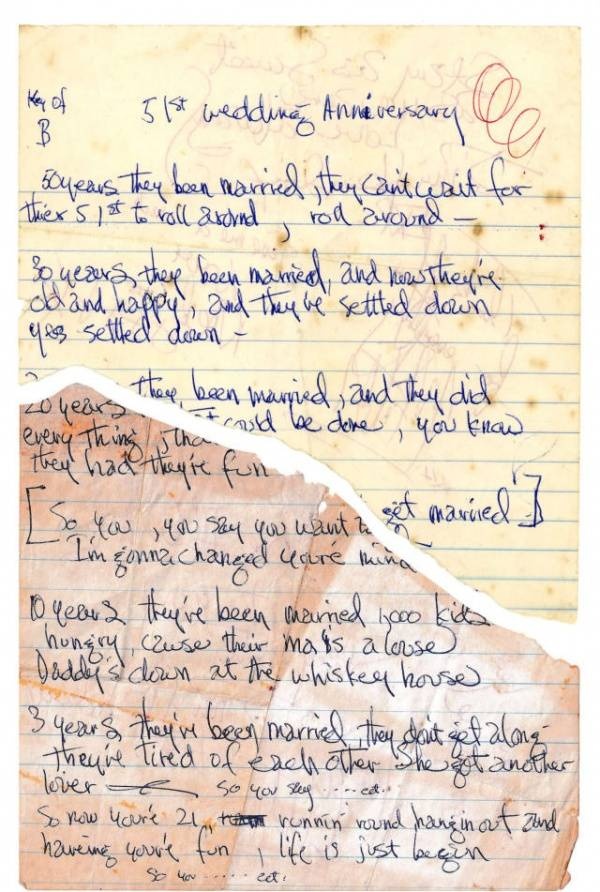 Key of
B
51st wedding Anniversary
50 years they been married, they can't wait for
thier 51st to roll around, roll around —
30 years, they been married, and now they're
old and happy, and they've settled down
yes settled down -
20 years they been married, and they did
every thing, that could be done, you know
they had they're fun
[So you, you say you want to get married]
I'm gonna changed youre mind
10 years they've been married 1,000 kids
hungry, cause their ma is a louse
Daddy's down at the whiskey house
3 years they've been married, they dont get along
they're tired of each other she got another
lover — so you say ..... ect.
So now youre 21, runnin' round hangin out and
haveing youre fun, life is just begun
so you ...... ect.